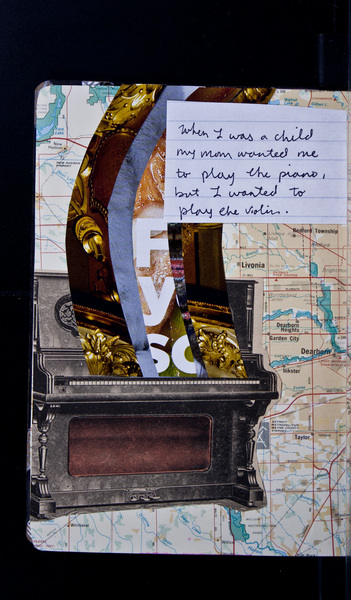 When I was a child
my mom wanted me
to play the piano,
but I wanted to
play the violin.
F
V
SO
Redford Township
Livonia
Dearborn
Heights
Garden City
Dearborn
Inkster
Taylor